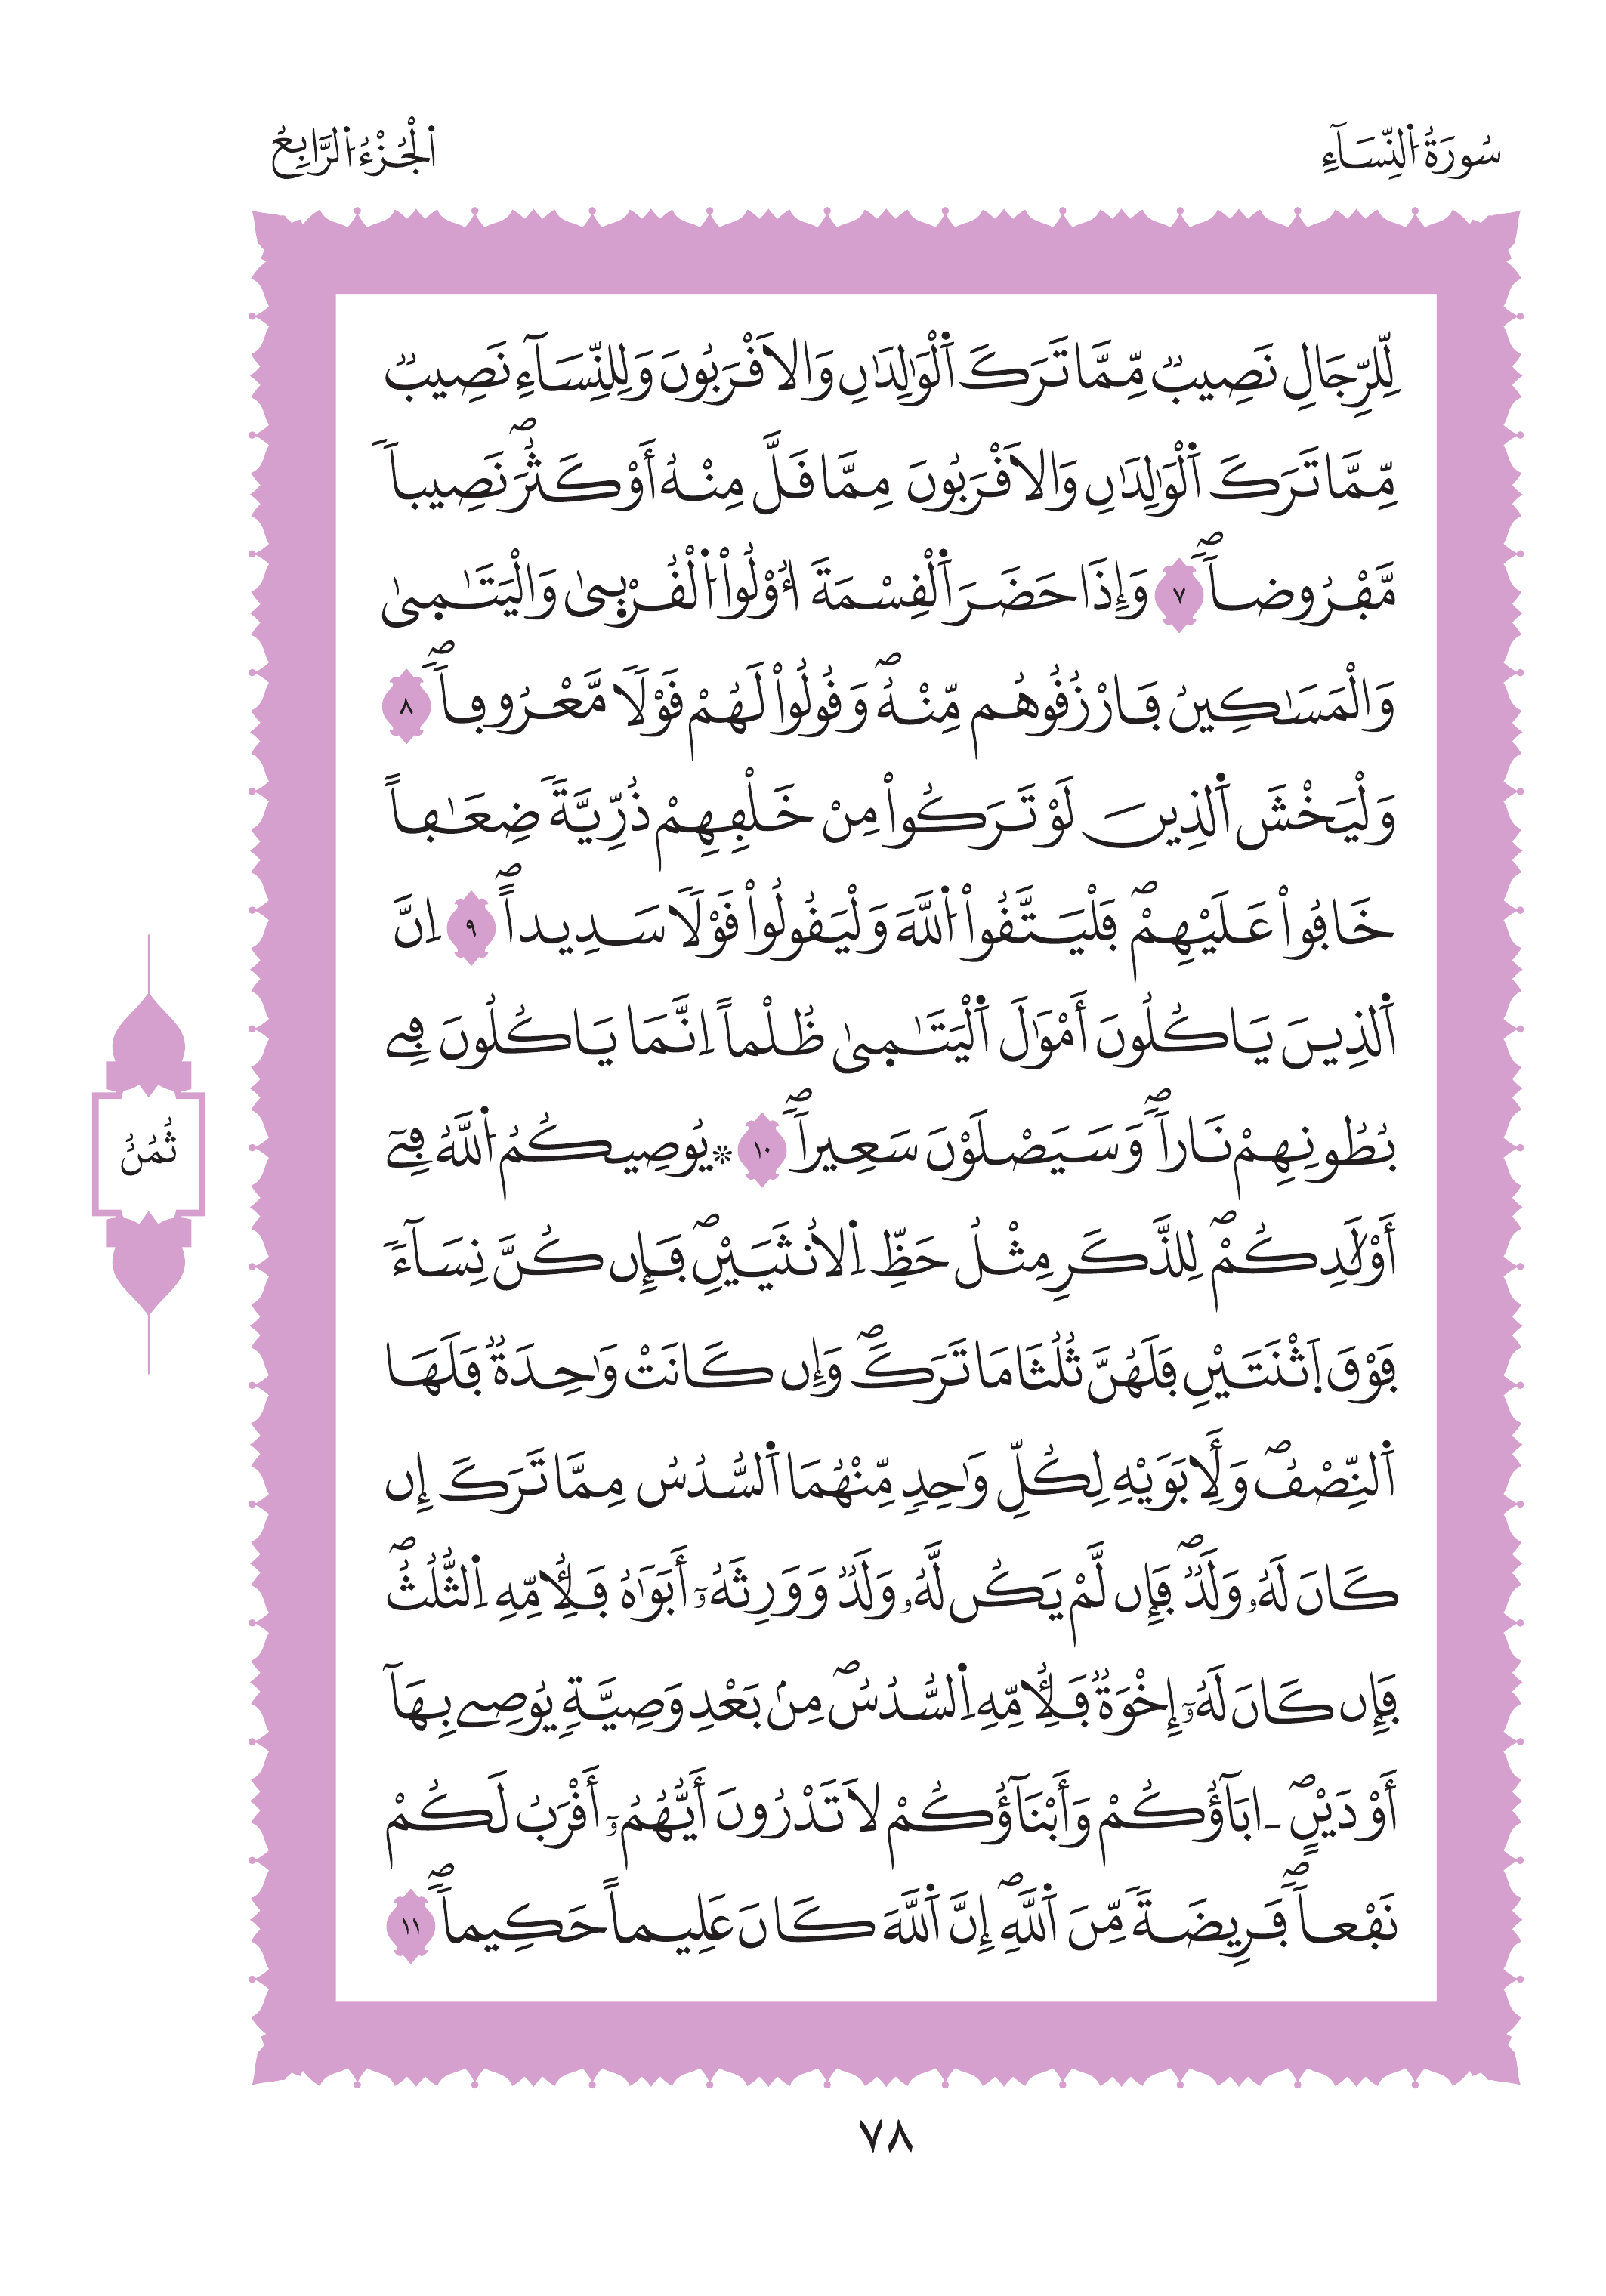 سُورَةُ اُ۬لنِّسَآءِ
اَ۬لْجُزْءُ اُ۬لرَّابِعُ
لِّلرِّجَالِ نَصِيبٞ مِّمَّا تَرَكَ اَ۬لْوَٰلِدَٰنِ وَالَاقْرَبُونَ وَلِلنِّسَآءِ نَصِيبٞ
مِّمَّا تَرَكَ اَ۬لْوَٰلِدَٰنِ وَالَاقْرَبُونَ مِمَّا قَلَّ مِنْهُ أَوْ كَثُرَۖ نَصِيباٗ
مَّفْرُوضاٗۖ ٧ وَإِذَا حَضَرَ اَ۬لْقِسْمَةَ أُوْلُواْ اُ۬لْقُرْب۪ىٰ وَالْيَتَٰم۪ىٰ
وَالْمَسَٰكِينُ فَارْزُقُوهُم مِّنْهُۖ وَقُولُواْ لَهُمْ قَوْلاٗ مَّعْرُوفاٗۖ ٨
وَلْيَخْشَ اَ۬لذِينَ لَوْ تَرَكُواْ مِنْ خَلْفِهِمْ ذُرِّيَّةٗ ضِعَٰفاً
خَافُواْ عَلَيْهِمْۖ فَلْيَتَّقُواْ اُ۬للَّهَ وَلْيَقُولُواْ قَوْلاٗ سَدِيداًۖ ٩ اِنَّ
اَ۬لذِينَ يَاكُلُونَ أَمْوَٰلَ اَ۬لْيَتَٰم۪ىٰ ظُلْماً اِنَّمَا يَاكُلُونَ فِے
بُطُونِهِمْ نَاراٗۖ وَسَيَصْلَوْنَ سَعِيراٗۖ ١٠ ۞يُوصِيكُمُ اُ۬للَّهُ فِےٓ
أَوْلَٰدِكُمْۖ لِلذَّكَرِ مِثْلُ حَظِّ اِ۬لُانثَيَيْنِۖ فَإِن كُنَّ نِسَآءٗ
فَوْقَ اَ۪ثْنَتَيْنِ فَلَهُنَّ ثُلُثَا مَا تَرَكَۖ وَإِن كَانَتْ وَٰحِدَةٞ فَلَهَا
اَ۬لنِّصْفُۖ وَلِأَبَوَيْهِ لِكُلِّ وَٰحِدٖ مِّنْهُمَا اَ۬لسُّدُسُ مِمَّا تَرَكَ إِن
كَانَ لَهُۥ وَلَدٞۖ فَإِن لَّمْ يَكُن لَّهُۥ وَلَدٞ وَوَرِثَهُۥٓ أَبَوَٰهُ فَلِأُمِّهِ اِ۬لثُّلُثُۖ
فَإِن كَانَ لَهُۥٓ إِخْوَةٞ فَلِأُمِّهِ اِ۬لسُّدُسُۖ مِنۢ بَعْدِ وَصِيَّةٖ يُوصِے بِهَآ
أَوْ دَيْنٍۖ ـ ابَآؤُكُمْ وَأَبْنَآؤُكُمْ لَا تَدْرُونَ أَيُّهُمُۥٓ أَقْرَبُ لَكُمْ
نَفْعاٗۖ فَرِيضَةٗ مِّنَ اَ۬للَّهِۖ إِنَّ اَ۬للَّهَ كَانَ عَلِيماً حَكِيماٗۖ ١١
ثُمُنُ
٧٨